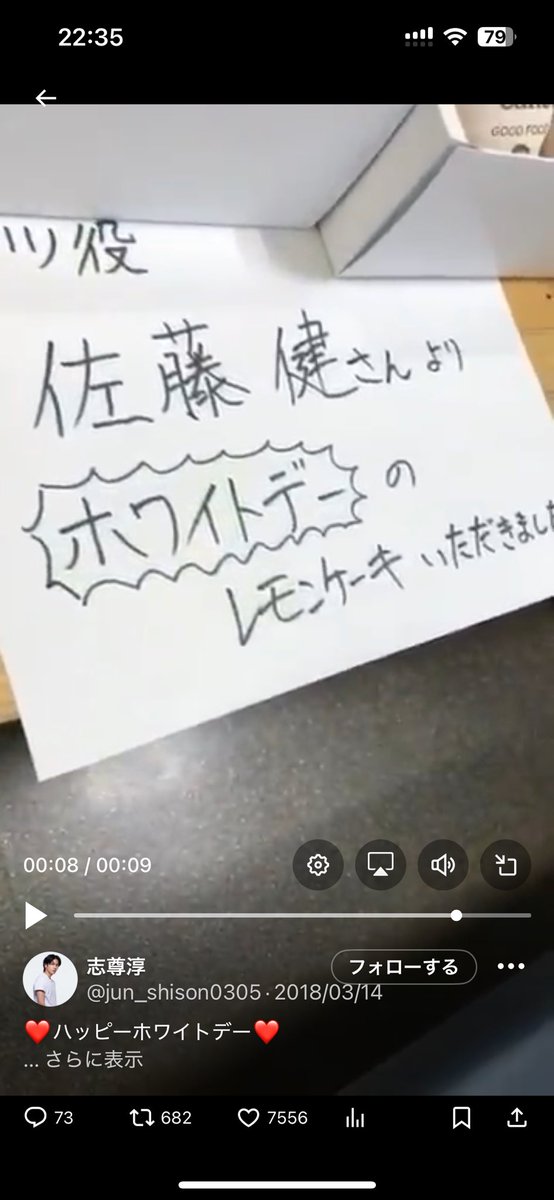 22:35
79
GOOD FOOD
ツ役
佐藤 健さんより
ホワイトデーの
レモンケーキ いただきました
00:08 / 00:09
志尊淳
フォローする
@jun_shison0305・2018/03/14
❤️ハッピーホワイトデー❤️
... さらに表示
73
682
7556